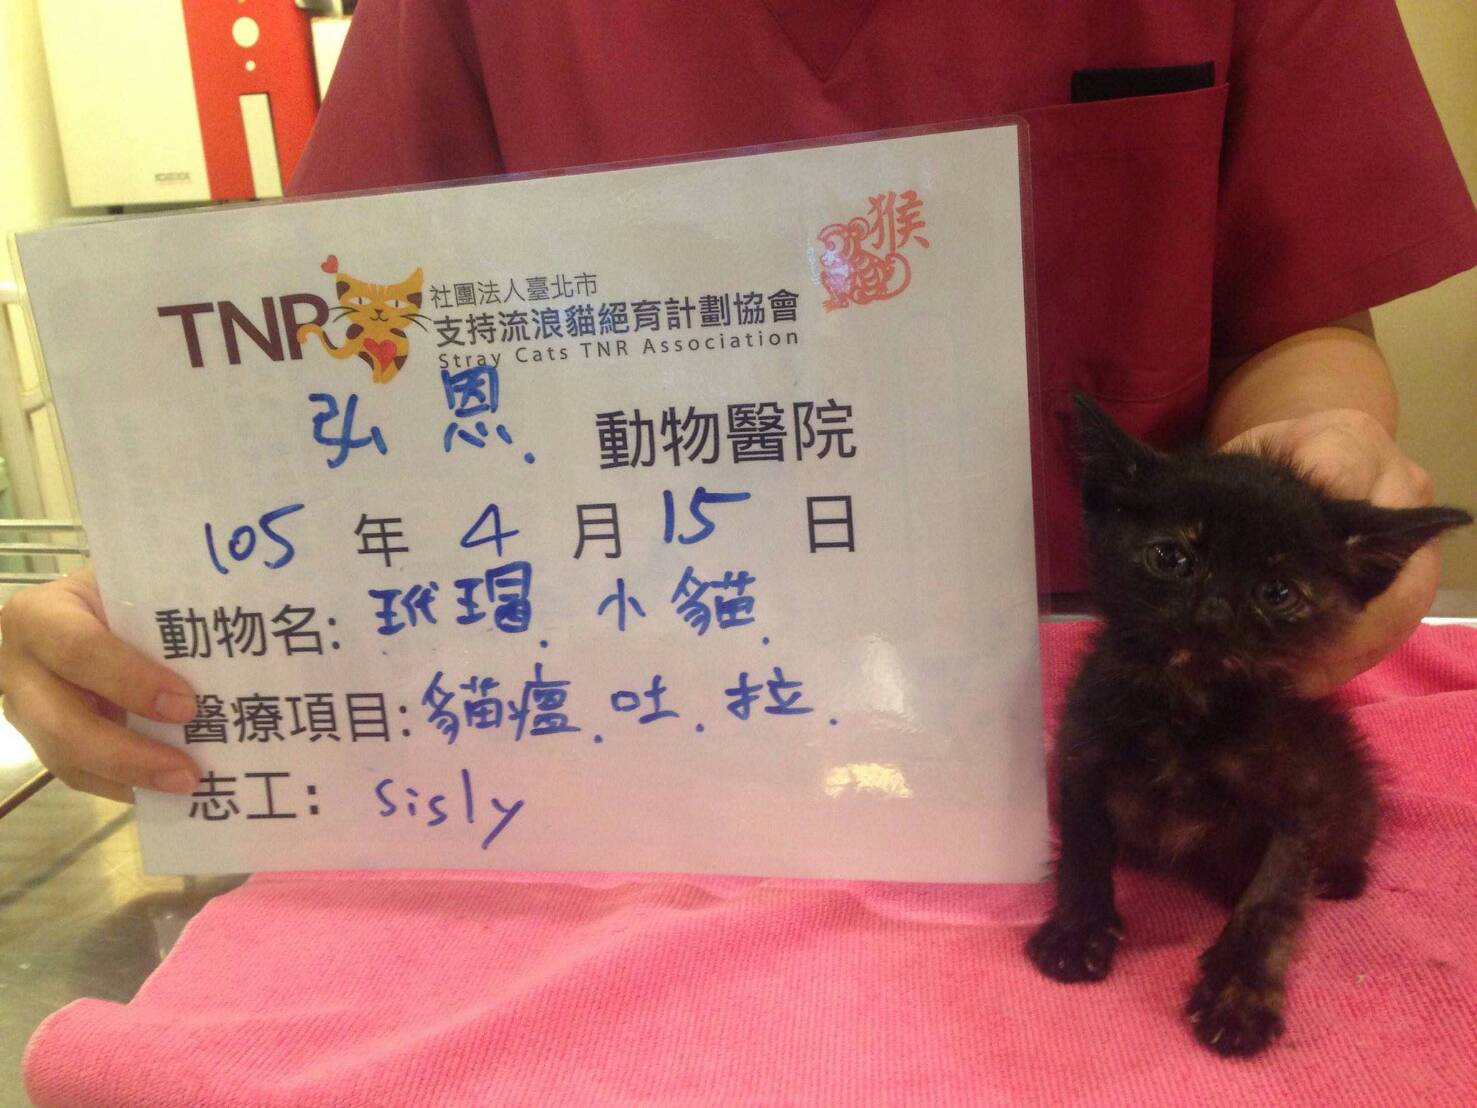 猴
TNR
社團法人臺北市
支持流浪貓絕育計劃協會
Stray Cats TNR Association
弘恩. 動物醫院
105 年 4 月 15 日
動物名: 玳瑁. 小貓.
醫療項目: 貓瘟. 吐. 拉.
志工: sisly